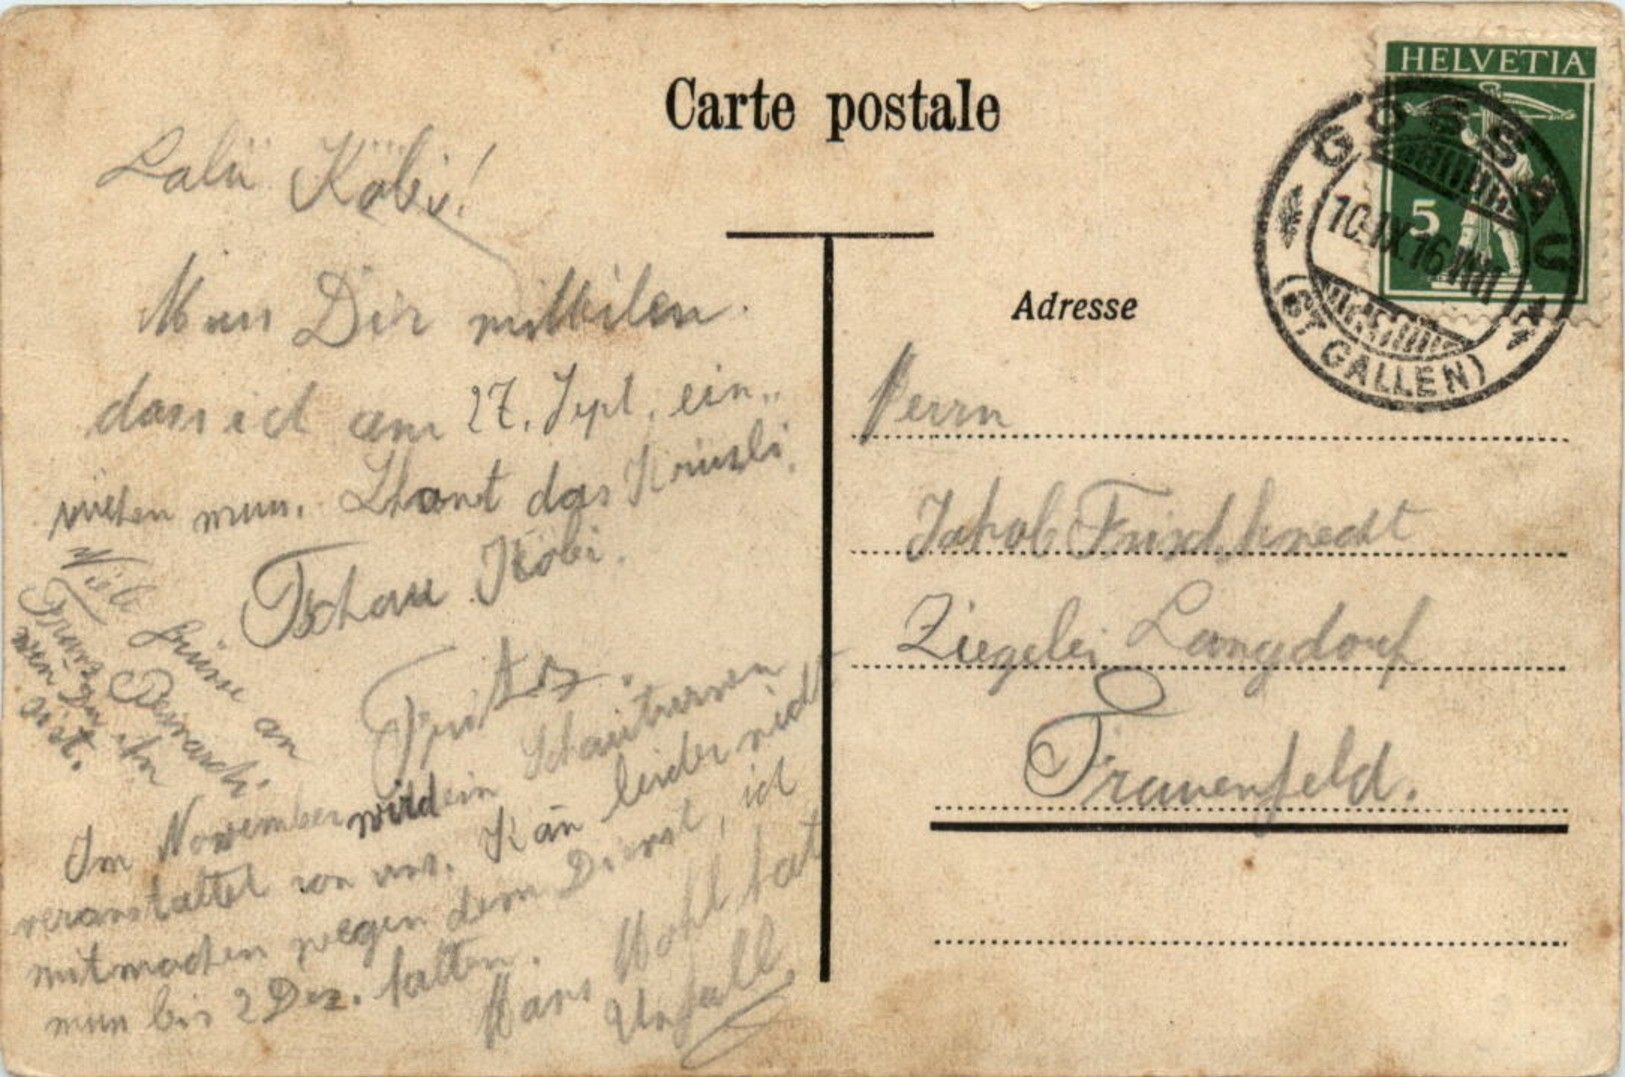 Carte postale
HELVETIA
5
GOSSAU
10.IX.16
(ST GALLEN)
Lalü Köbi!
Muss Dir mitteilen.
dass ich am 27. Sept. ein„
rücken muss. Lhont das Krüsli.
Tschau Köbi.
Fritz.
Viele Grüsse an
Franz Bernardi.
wen Du ihn
sist.
Im November wird ein Schauturnen
veranstaltet von uns. Kan̄ leider nicht
mitmachen wegen dem Dienst, ich
muss bis 2 Dez. halten.
Hans Hohl hat
Unfall.
Adresse
Herrn
Jakob Frischknecht
Ziegelei Langdorf
Frauenfeld.